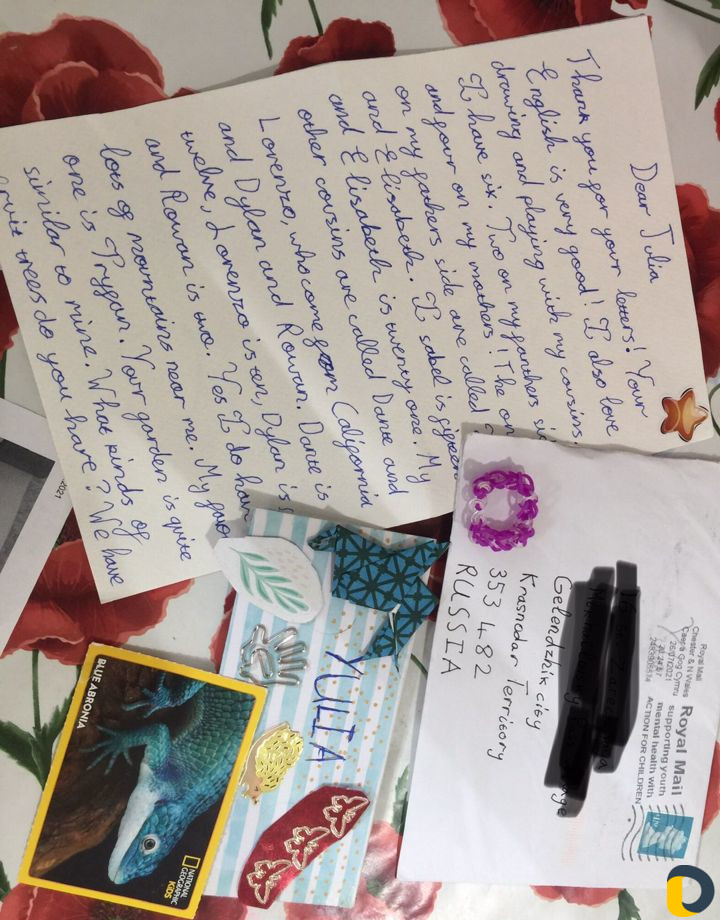 Dear Julia
Thank you for your letters! Your
English is very good! I also love
drawing and playing with my cousins.
I have six. Two on my fathers
and four on my mothers! The
on my fathers side are called
and Elisabeth. Isabel is
and Elisabeth is twenty one. My
other cousins are called Dante and
Lorenzo, who come from California
and Dylan and Rowan. Dante is
twelve, Lorenzo is ten, Dylan is
and Rowan is two. Yes I do
lots of mountains near me. My
one is Tryfan. Your garden is quite
similar to mine. What kinds of
trees do you have? We have
Royal Mail
Chester & N Wales
Caer a Gog Cymru
26/07/2021
Royal Mail
supporting youth
mental health with
ACTION FOR CHILDREN
Gelendzhik city
Krasnodar Territory
353 482
RUSSIA
YULIA
BLUE ABRONIA
NATIONAL
GEOGRAPHIC
KiDS
2021